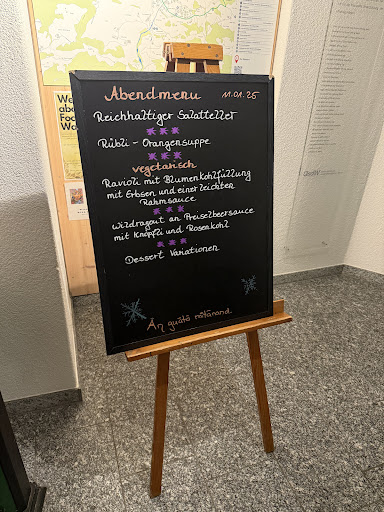 Abendmenu 11.01.25
Reichhaltiger Salatteller
Rübli - Orangensuppe
vegetarisch
Ravioli mit Blumenkohlfüllung
mit Erbsen und einer leichten
Rahmsauce
Wildragout an Preiselbeersauce
mit Knöpfli und Rosenkohl
Dessert Variationen
Än guätä mitänand